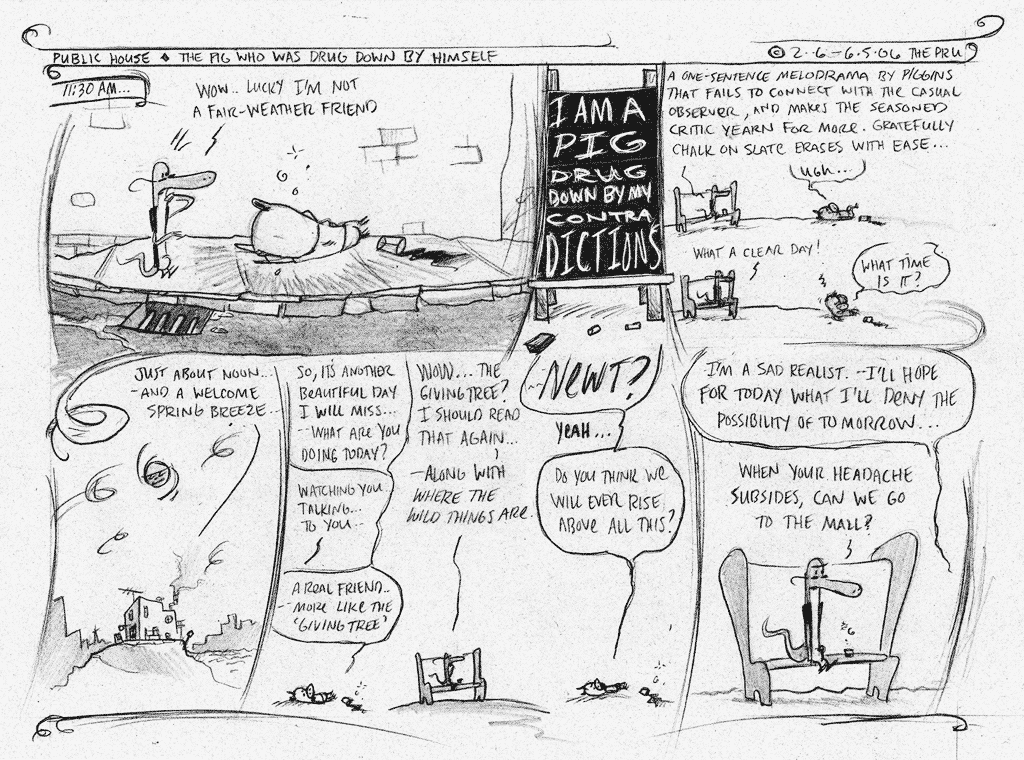 PUBLIC HOUSE ◆ THE PIG WHO WAS DRUG DOWN BY HIMSELF
© 2··6–6·5·06 THE PRU
11:30 AM...
WOW.. LUCKY I'M NOT
A FAIR-WEATHER FRIEND
I AM A
PIG
DRUG
DOWN BY MY
CONTRA
DICTIONS
A ONE-SENTENCE MELODRAMA BY PIGGINS
THAT FAILS TO CONNECT WITH THE CASUAL
OBSERVER, AND MAKES THE SEASONED
CRITIC YEARN FOR MORE. GRATEFULLY
CHALK ON SLATE ERASES WITH EASE...
UGH...
WHAT A CLEAR DAY!
WHAT TIME
IS IT?
JUST ABOUT NOON...
-AND A WELCOME
SPRING BREEZE..
SO, IT'S ANOTHER
BEAUTIFUL DAY
I WILL MISS...
--WHAT ARE YOU
DOING TODAY?
WATCHING YOU
TALKING...
TO YOU..
A REAL FRIEND..
--MORE LIKE THE
'GIVING TREE'
WOW... THE
GIVING TREE?
I SHOULD READ
THAT AGAIN...
-ALONG WITH
WHERE THE
WILD THINGS ARE.
--NEWT?
YEAH...
DO YOU THINK WE
WILL EVER RISE
ABOVE ALL THIS?
I'M A SAD REALIST. --I'LL HOPE
FOR TODAY WHAT I'LL DENY THE
POSSIBILITY OF TOMORROW...
WHEN YOUR HEADACHE
SUBSIDES, CAN WE GO
TO THE MALL?